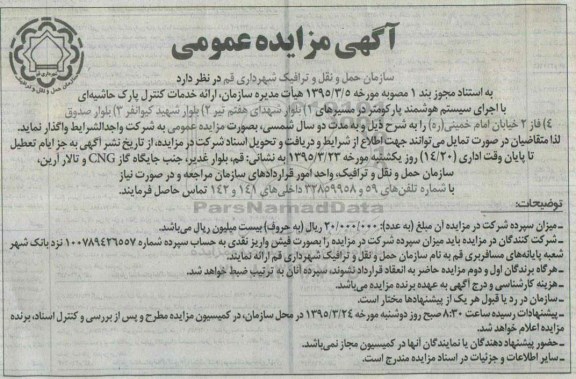 آگهی مزایده عمومی
سازمان حمل و نقل و ترافیک شهرداری قم در نظر دارد
به استناد مجوز بند ۱ مصوبه مورخه ۱۳۹۵/۳/۵ هیأت مدیره سازمان، ارائه خدمات کنترل پارک حاشیه‌ای
با اجرای سیستم هوشمند پارکومتر در مسیرهای ۱) بلوار شهدای هفتم تیر ۲) بلوار شهید کیوانفر ۳) بلوار صدوق
۴) فاز ۲ خیابان امام خمینی(ره) را به شرح ذیل و به مدت دو سال شمسی، بصورت مزایده عمومی به شرکت واجدالشرایط واگذار نماید.
لذا متقاضیان در صورت تمایل می‌توانند جهت اطلاع از شرایط و دریافت و تحویل اسناد شرکت در مزایده، از تاریخ نشر آگهی به جز ایام تعطیل
تا پایان وقت اداری (۱۴/۲۰) روز یکشنبه مورخه ۱۳۹۵/۳/۲۳ به نشانی: قم، بلوار غدیر، جنب جایگاه گاز CNG و تالار آرین،
سازمان حمل و نقل و ترافیک، واحد امور قراردادهای سازمان مراجعه و در صورت نیاز
با شماره تلفن‌های ۵۹ و ۳۲۸۵۹۹۵۸ داخلی‌های ۱۴۱ و ۱۴۲ تماس حاصل فرمایند.
ParsNamadData
توضیحات:
ـ میزان سپرده شرکت در مزایده آن مبلغ (به عدد): ۲۰/۰۰۰/۰۰۰ ریال (به حروف) بیست میلیون ریال می‌باشد.
ـ شرکت کنندگان در مزایده باید میزان سپرده شرکت در مزایده را بصورت فیش واریز نقدی به حساب سپرده شماره ۱۰۰۷۸۹۴۲۶۵۵۷ نزد بانک شهر
شعبه پایانه‌های مسافربری قم به نام سازمان حمل و نقل و ترافیک شهرداری قم ارائه نمایند.
ـ هرگاه برندگان اول و دوم مزایده حاضر به انعقاد قرارداد نشوند، سپرده آنان به ترتیب ضبط خواهد شد.
ـ هزینه کارشناسی و درج آگهی به عهده برنده مزایده می‌باشد.
ـ سازمان در رد یا قبول هر یک از پیشنهادها مختار است.
ـ پیشنهادات رسیده ساعت ۸:۳۰ صبح روز دوشنبه مورخه ۱۳۹۵/۳/۲۴ در محل سازمان، در کمیسیون مزایده مطرح و پس از بررسی و کنترل اسناد، برنده
مزایده اعلام خواهد شد.
ـ حضور پیشنهاد دهندگان یا نمایندگان آنها در کمیسیون مجاز نمی‌باشد.
ـ سایر اطلاعات و جزئیات در اسناد مزایده مندرج است.